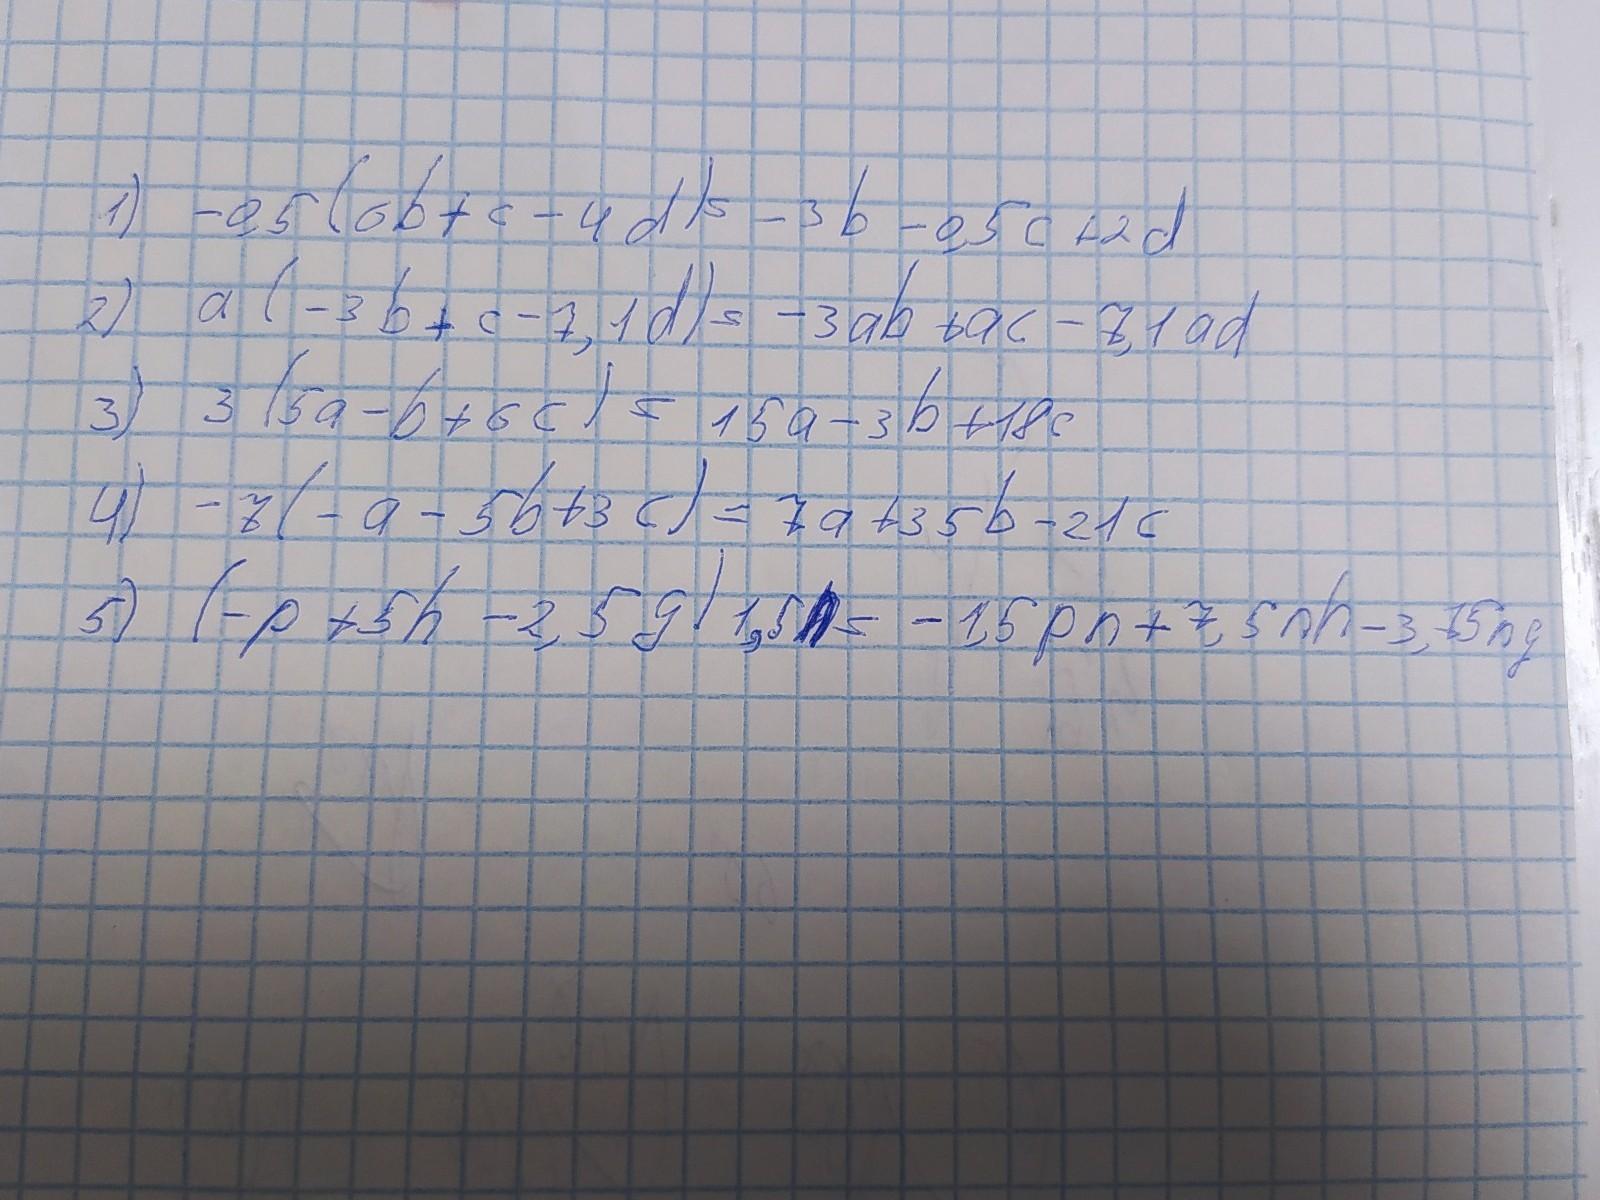 1) -0,5(6b+c-4d)= -3b-0,5c+2d
2) a(-3b+c-7,1d)= -3ab+ac-7,1ad
3) 3(5a-b+6c)= 15a-3b+18c
4) -7(-a-5b+3c)= 7a+35b-21c
5) (-p+5h-2,5g)1,5n= -1,5pn+7,5nh-3,75ng